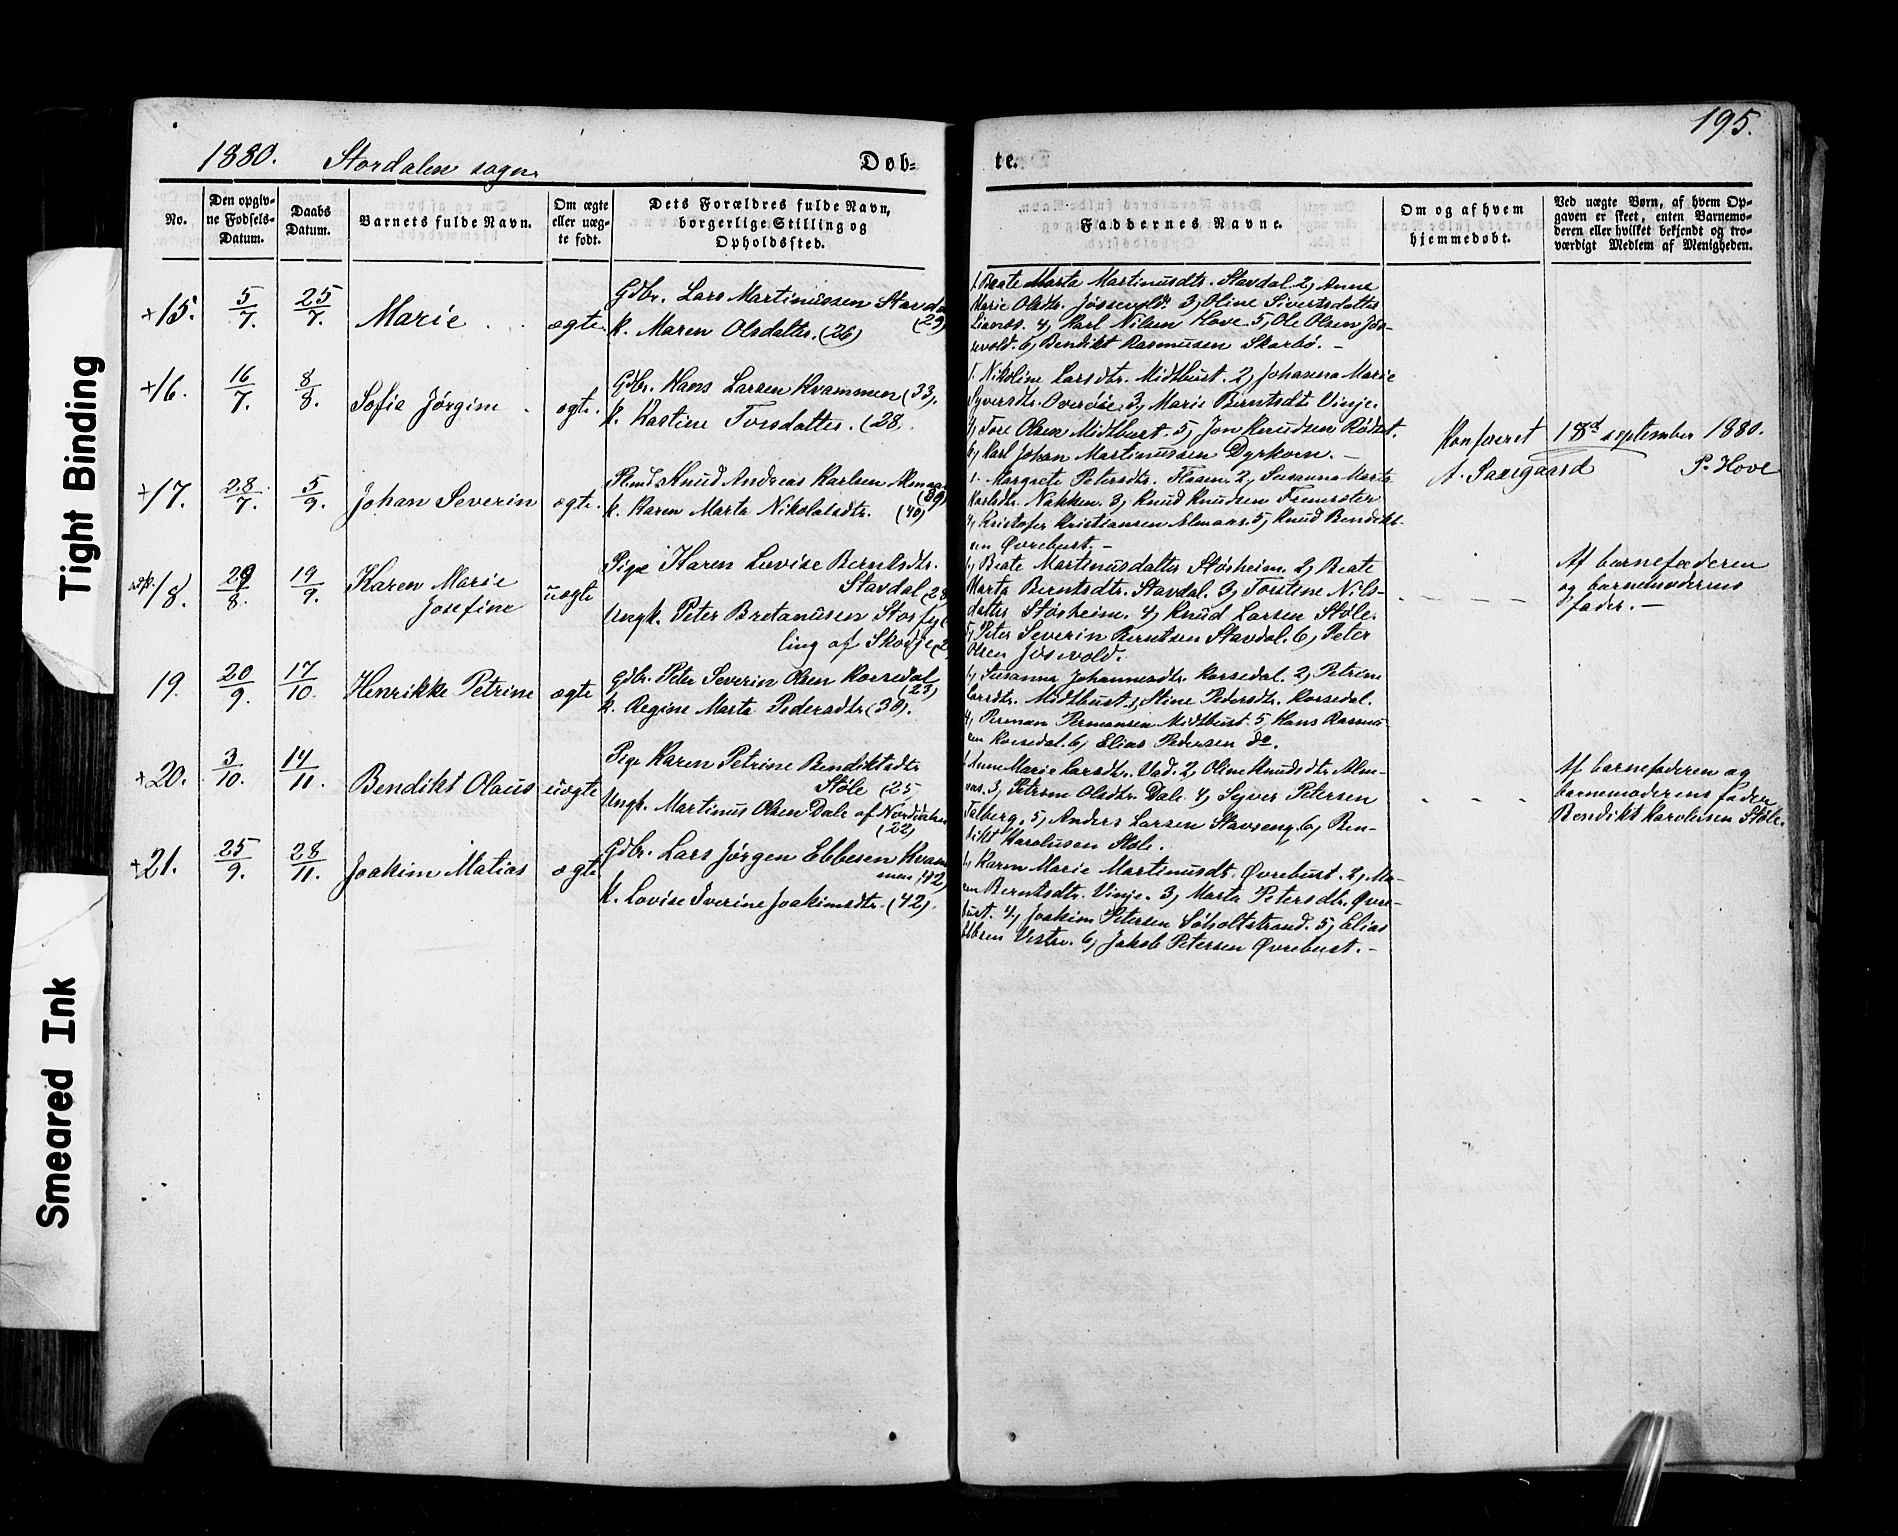 195.
1880. Stordalen sogn.
Døb-
te.
No.
Den opgiv-
ne Fødsels-
Datum.
Daabs
Datum.
Barnets fulde Navn.
Om ægte
eller uæg-
te født.
Dets Forældres fulde Navn,
borgerlige Stilling og
Opholdssted.
Faddernes Navne.
Om og af hvem
hjemmedøbt.
Ved uægte Børn, af hvem Op-
gaven er skeet, enten Barnemo-
deren eller hvilket bekjendt og tro-
værdigt Medlem af Menigheden.
+15. 5/7. 25/7. Marie ægte
Gdbr. Lars Martinussen Stavdal
(29)
k. Maren Olsdatter. (26)
1, Beate Marta Martinusdtr. Stavdal. 2, Anne
Marie Olsdtr. Jössevold. 3, Oline Sivertsdatter
4, Karl Nilsen Hove. 5, Ole Olsen Jös-
sevold. 6, Bendikt Rasmussen Skarbö. -
+16. 16/7. 8/8. Sofie Jørgine ægte.
Gdbr. Hans Larsen Kvammen (33).
k. Kastine Torsdatter. (28.
1. Nikoline Larsdtr. Midtbust. 2, Johanna Marie
Syversdtr. Overöie. 3, Marie Berntsdtr. Vinje.
4, Tore Olsen Midtbust. 5, Jon Knudsen Rödset.
6, Karl Johan Martinussen Dyrkorn. -
Konfereret 18de september 1880.
A. Saxegaard P. Hove
+17. 28/7. 5/9. Johan Severin ægte.
Knud Andreas Karlsen Almaas
(39)
k. Karen Marta Nikolaisdtr. (40)
1. Margrete Petersdtr. Flaam. 2, Susanna Marta
Karlsdtr. Nakken. 3, Knud Knudsen Fremster
4, Kristofer Kristiansen Almaas. 5, Knud Bendikt-
sen Øvrebust. -
18. 29/8. 19/9. Karen Marie
Josefine
uægte
Pige Karen Lovise Berntsdtr.
Stavdal (28
Ungk. Peter Bretanusen Storfyl-
ling af Skodje (2
1, Beate Martinusdatter Störheim. 2, Beate
Marta Berntsdtr. Stavdal. 3, Torstene Nils-
datter Störheim. 4, Knud Larsen Støle.
5, Peter Severin Berntsen Stavdal. 6, Peter
Olsen Jösevold.
Af barnefaderen
og barnemoderens
fader. -
19. 20/9. 17/10. Henrikke Petrine ægte
Gdbr. Peter Severin Olsen Korsedal
(23)
k. Regine Marta Pedersdtr. (30).
1, Susanna Johannesdtr. Korsedal. 2, Petrine
Larsdtr. Midtbust. 3, Stine Pedersdtr. Korsedal.
4, Perman Permansen Midtbust. 5, Hans Rasmus-
sen Korsedal. 6, Elias Pedersen do.
+20. 3/10. 14/11. Bendikt Olaus uægte
Pige Karen Petrine Bendiktsdtr
Støle (25
Ungk. Martinus Olsen Dale af Norddalen
(22)
1, Anne Marie Larsdtr. Vad. 2, Oline Knudsdtr. Alm-
aas. 3, Petrine Olsdtr. Dale. 4, Syver Petersen
Talberg. 5, Anders Larsen Stavseng. 6, Ben-
dikt Karolusen Støle.
Af barnefaderen og
barnemoderens fader
Bendikt Karolusen Støle.
+21. 25/9. 28/11. Joakim Matias ægte
Gdbr. Lars Jørgen Ebbesen Kvam-
men (42)
k. Lovise Iverine Joakimsdtr. (42).
1, Karen Marie Martinusdtr. Øvrebust. 2, Ma-
ren Berntsdtr. Vinje. 3, Marta Petersdtr. Øvre-
bust. 4, Joakim Petersen Søholtstrand. 5, Elias
Ebbesen Vestre. 6, Jakob Petersen Øvrebust. -
Tight Binding
Smeared Ink